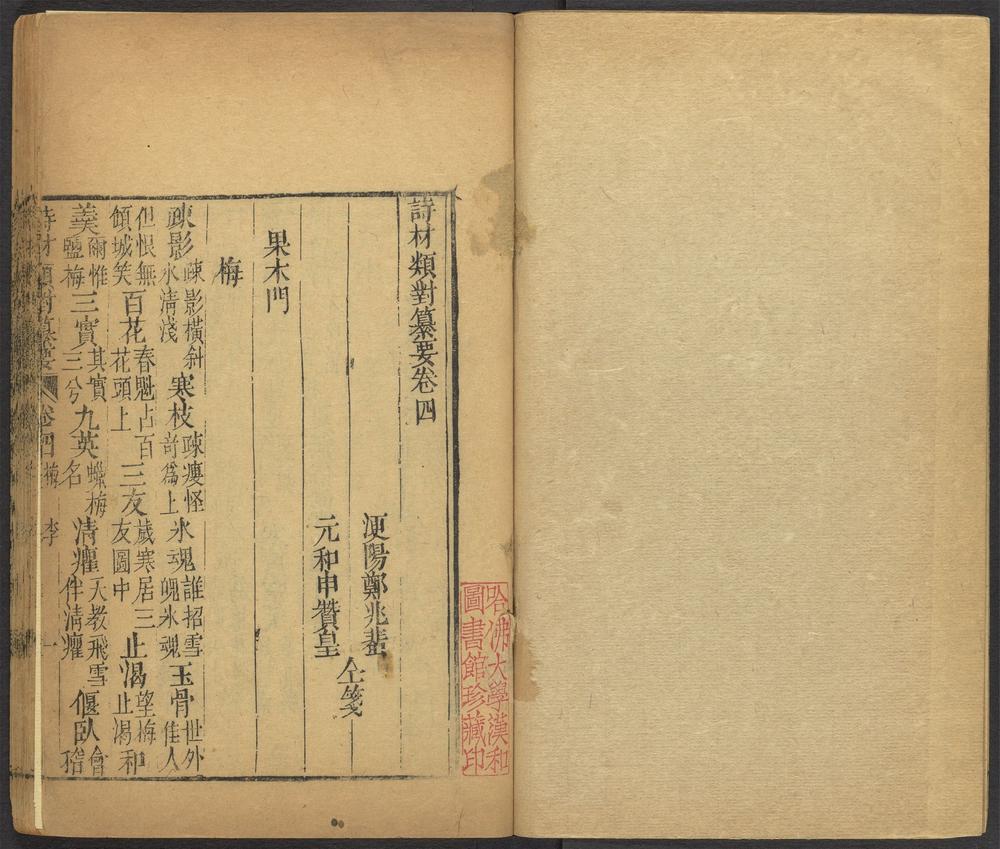 詩材類對纂要卷四
浭陽鄭兆蜚
元和申贊皇
仝箋
果木門
梅
疎影疎影橫斜水淸淺寒枝疎瘦怪奇爲上氷魂誰招雪魄氷魂玉骨世外佳人
但恨無傾城笑百花春魁占百花頭上三友歲寒居三友圖中止渴望梅止渴和
羹爾惟鹽梅三實其實三兮九英蠟梅名淸癯天教飛雪伴淸癯偃臥會稽
詩材類對纂要 卷四 梅 李 一
哈佛大學漢和
圖書館珍藏印